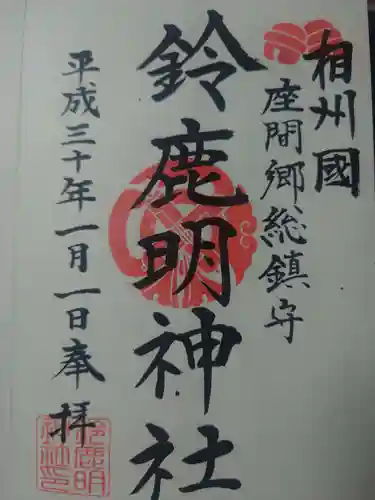 相州國
座間郷総鎮守
鈴鹿明神社
平成三十年一月一日奉拝
鈴鹿明神社印